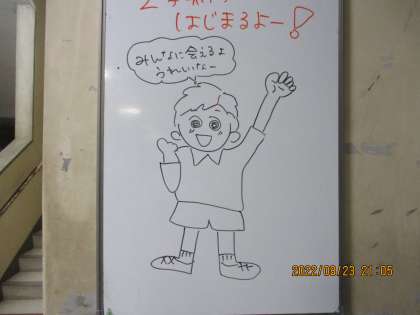 2学期が
はじまるよー!
みんなに会えるよ
うれしいなー
2022/08/23 21:05